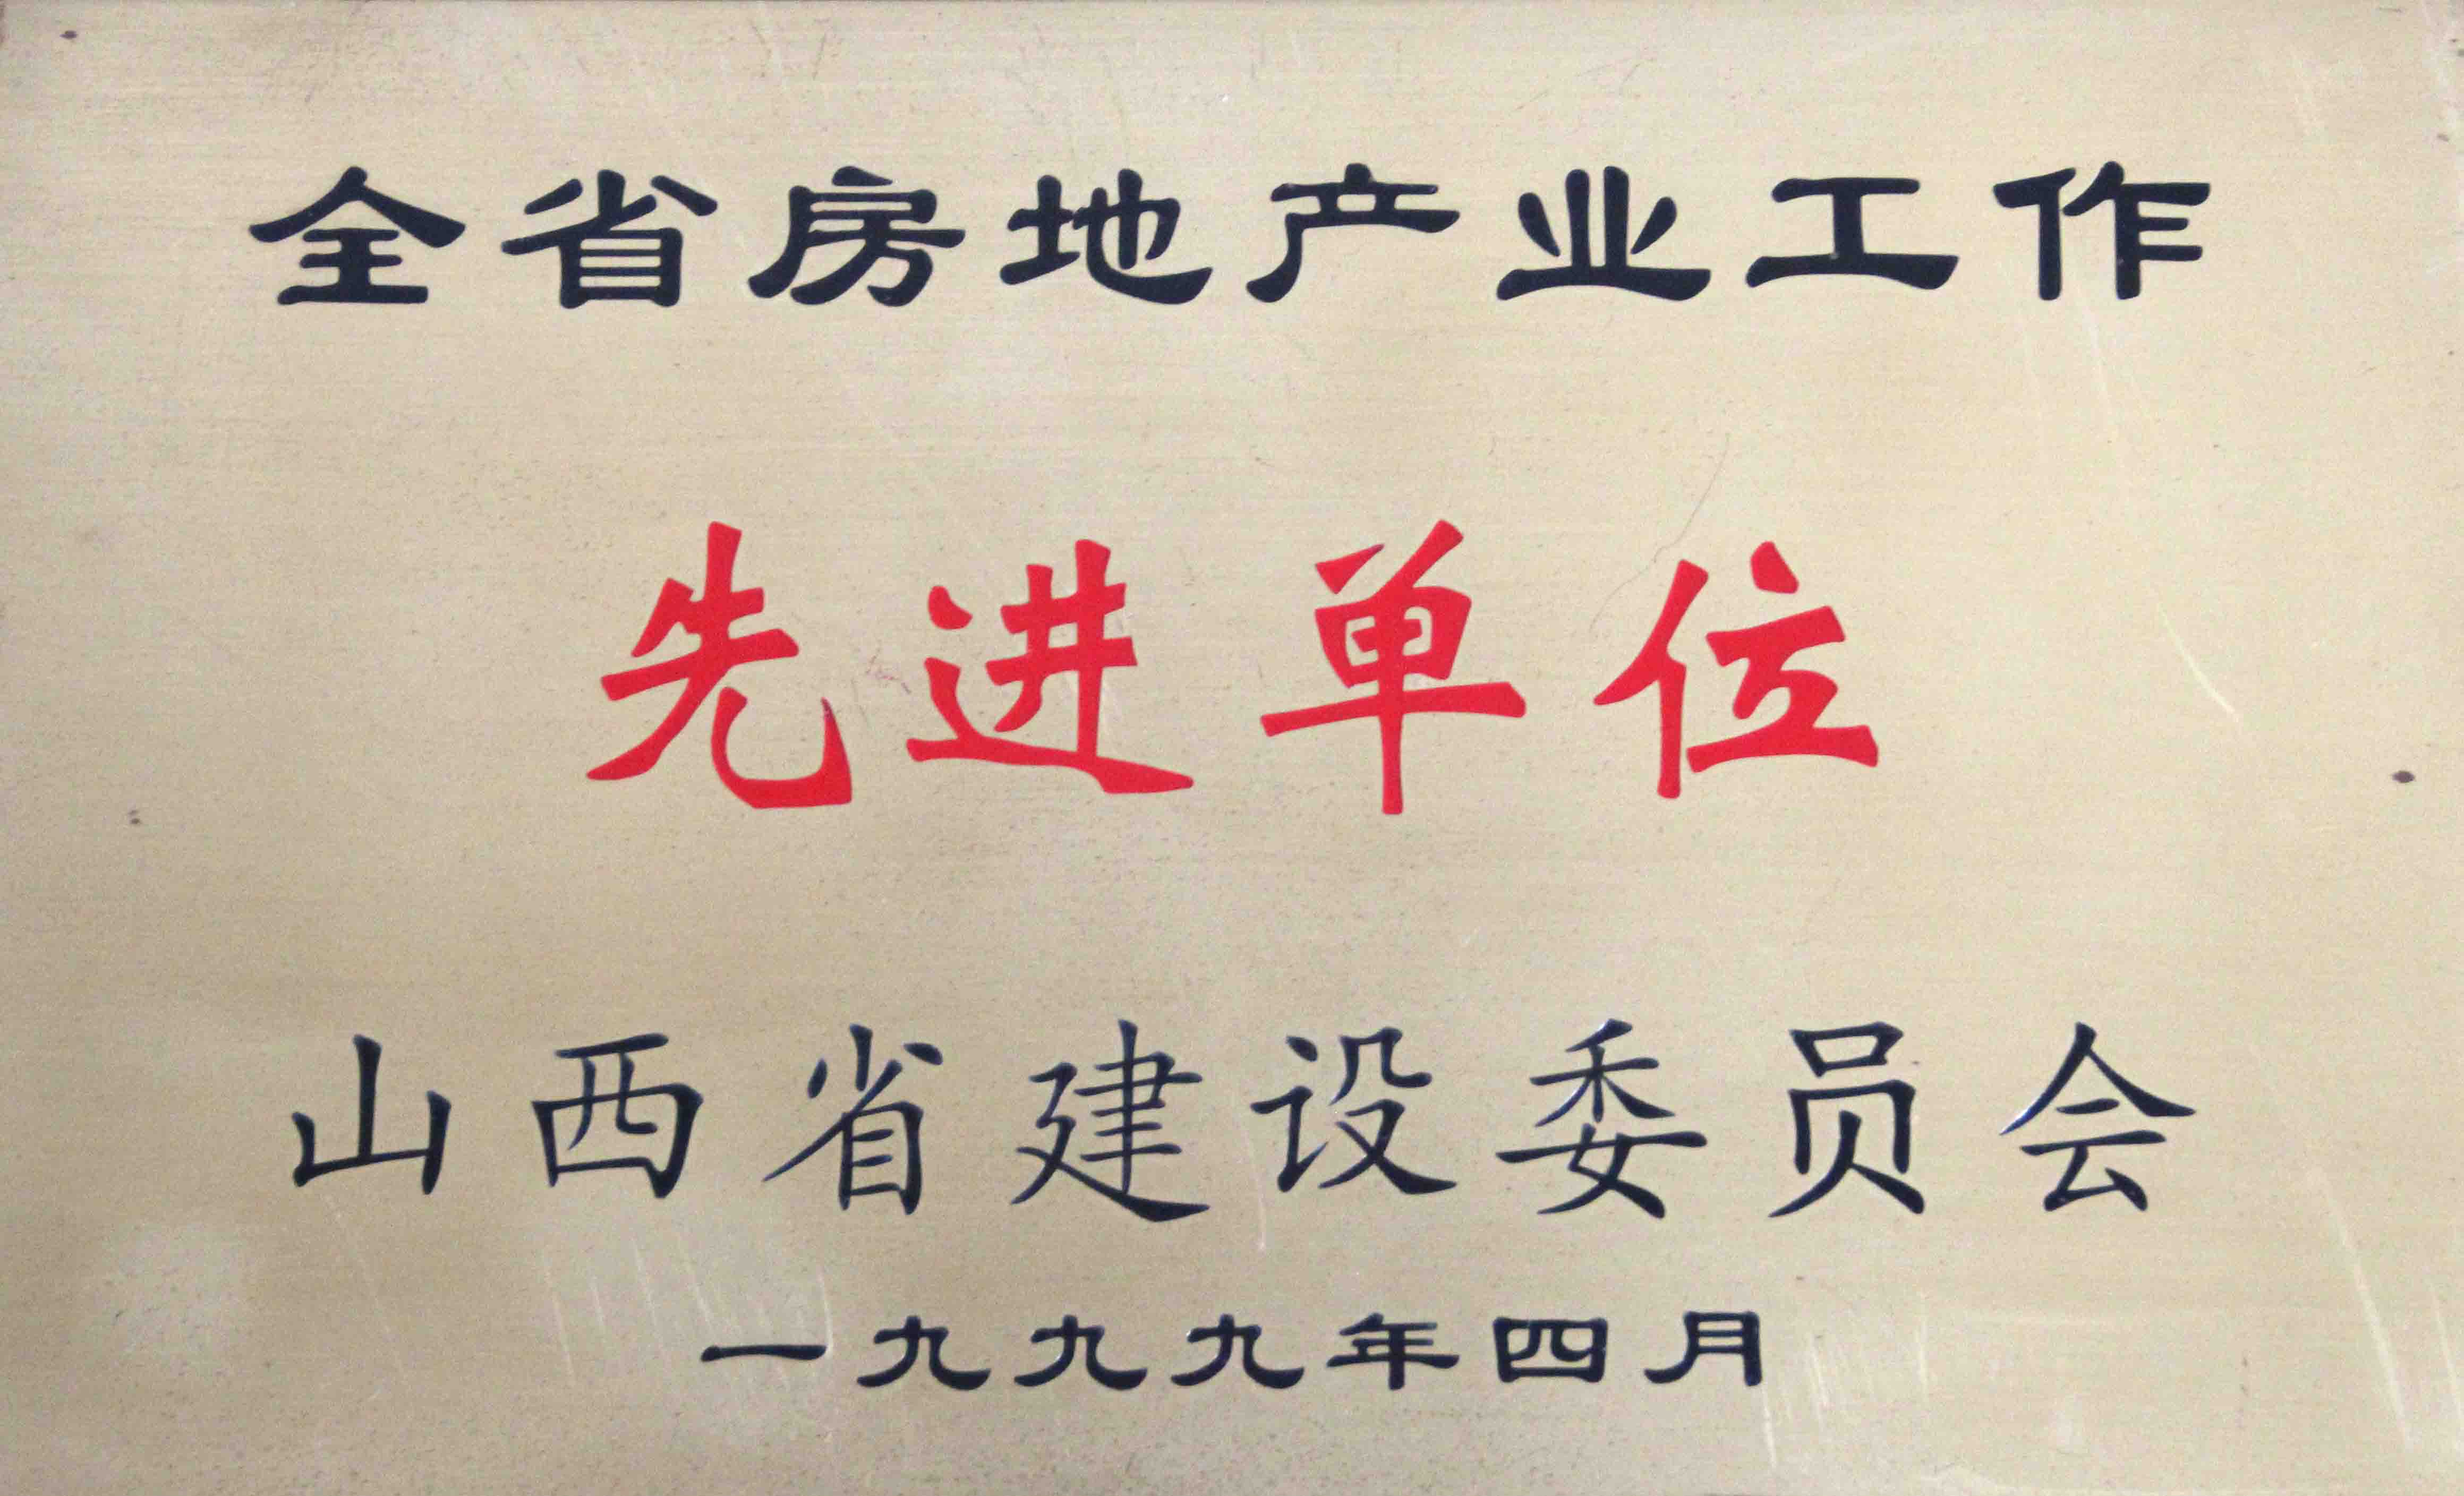 全省房地产业工作
先进单位
山西省建设委员会
一九九九年四月